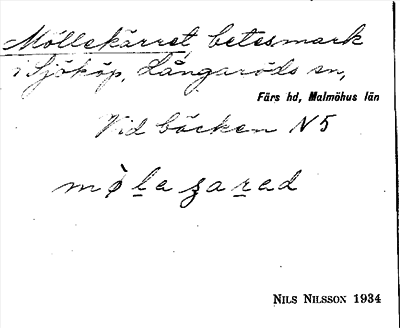 Möllekärret, betesmark
i Sjököp, Långaröds sn,
Färs hd, Malmöhus län
Vid bäcken N5
NILS NILSSON 1934